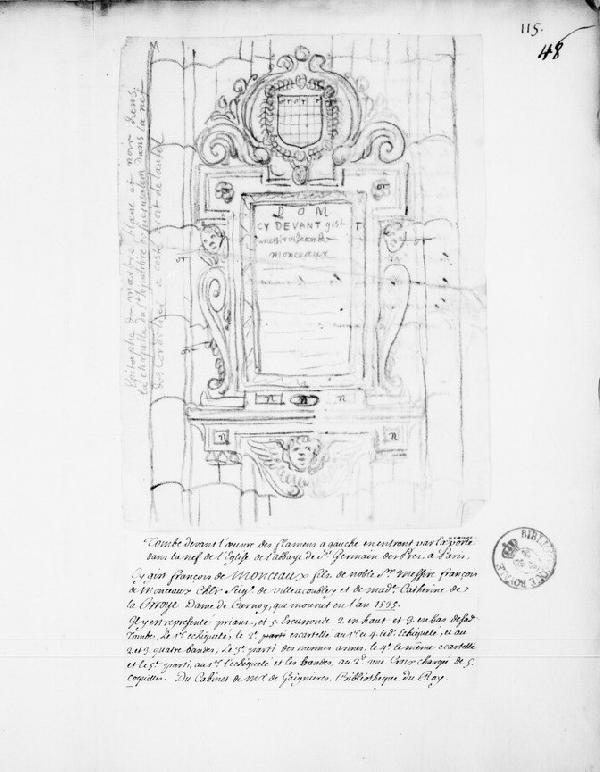 115.
48
Epitaphe de marbre blanc et noir dans
la chapelle de
D O M
CY DEVANT gist
messire
monceaux
n n
n n
Tombe devant l'œuvre des flamens a gauche en entrant par la porte
dans la nef de l'Eglise de l'abbaye de St. Germain des Prez, a Paris.
Cy gist françois de MONCEAUX filz de noble Sr. messire françois
de monceaux Chlr Seigr. de villeacoublay et de made. Catherine de
la Dame de qui mourut en l'an 1595.
Il y est representé priant, et 5 Ecussons 2 en haut et 3 en bas de sad.
Tombe, Le 1er. echiqueté, le 2e. parti escartellé, au 1er. et 4 id. Echiqueté, et au
2 et 3 quatre bandes, le 3e. parti des mesmes armes, le 4e. le mème ecartellé
et le 5e. parti, au 1er. l'echiqueté et les bandes, au 2d. une Croix chargée de 5.
coquilles. Du Cabinet de Mr. de Gaignieres, Bibliotheque du Roy.